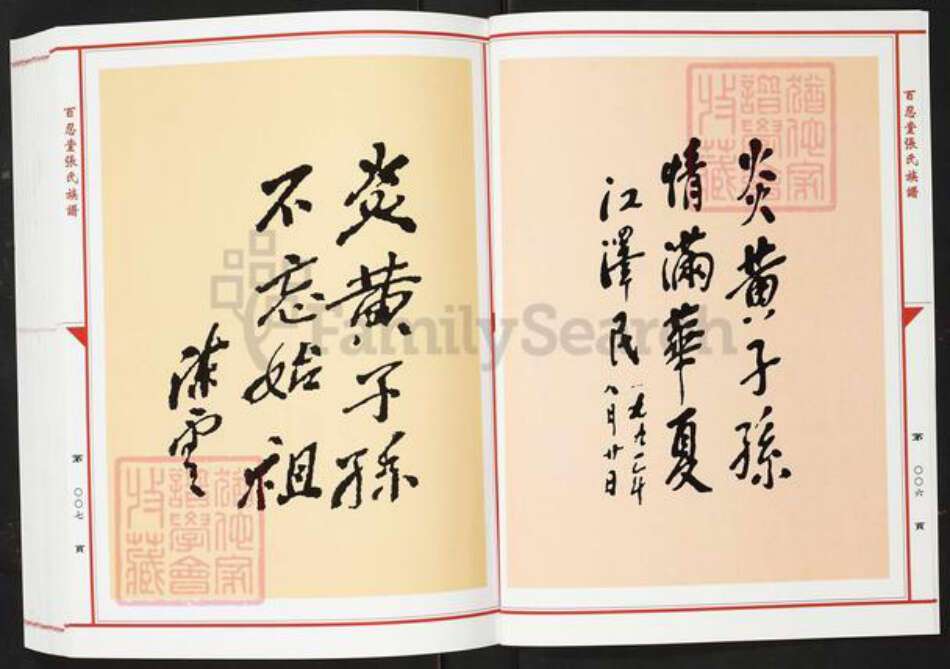 百忍堂張氏族譜
第 〇〇六 頁
炎黃子孫
情滿華夏
江澤民
一九九一年
八月廿日
猶他家
譜學會
收藏
炎黄子孫
不忘始祖
陈雲
百忍堂張氏族譜
第 〇〇七 頁
猶他家
譜學會
收藏
FamilySearch